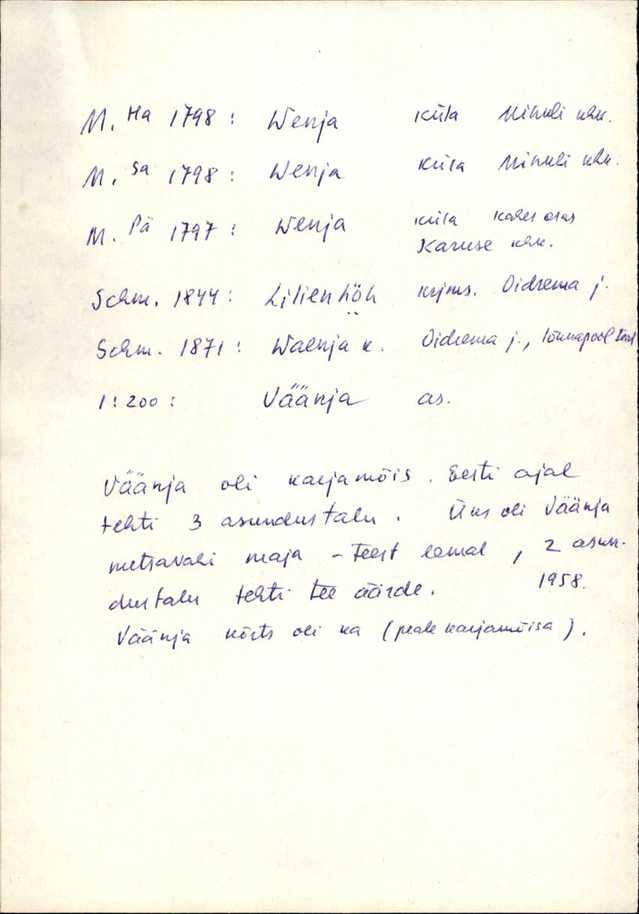 M. Ha 1798 : Wenja küla Mihkli khk.
M. Sa 1798 : Wenja küla Mihkli khk.
M. Pä 1797 : Wenja küla kahes osas
Karuse khk.
Schm. 1844 : Lilienhöh krjms. Oidrema j.
Schm. 1871 : Waenja k. Oidrema j., lõunapool
1:200 : Väänja as.
Väänja oli karjamõis. Eesti ajal
tehti 3 asundustalu. Üks oli Väänja
metsavahi maja – teest eemal, 2 asun-
dustalu tehti tee äärde. 1958.
Väänja kõrts oli ka (peale karjamõisa).